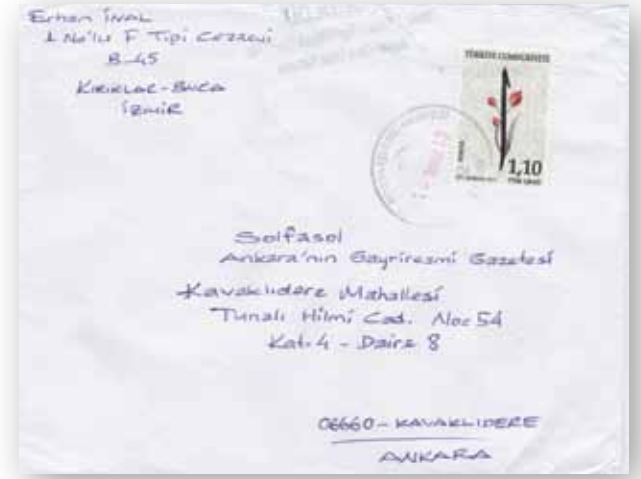 Erhan İNAL
1 No'lu F Tipi Cezaevi
B-45
KIRIKLAR-BUCA
İZMİR
TÜRKİYE CUMHURİYETİ
1,10
Solfasol
Ankara'nın Gayriresmi Gazetesi
Kavaklıdere Mahallesi
Tunalı Hilmi Cad. No: 54
Kat: 4 - Daire 8
06660-KAVAKLIDERE
ANKARA